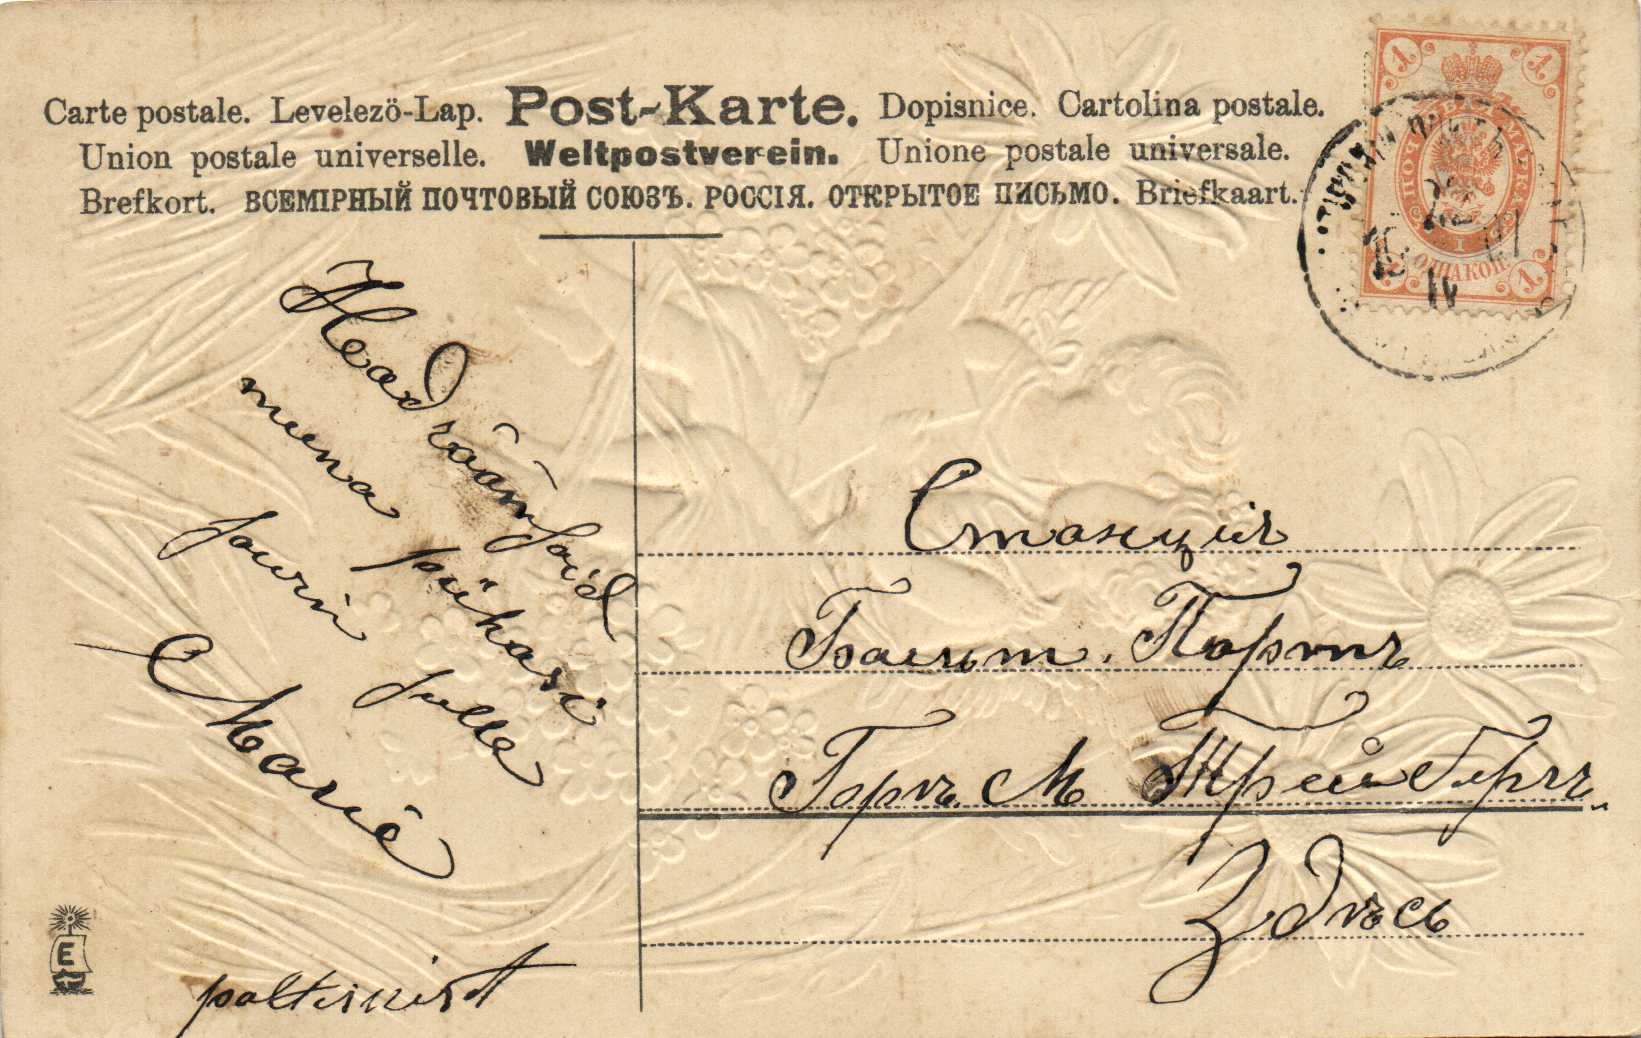 Carte postale. Levelezö-Lap. Post-Karte. Dopisnice. Cartolina postale.
Union postale universelle. Weltpostverein. Unione postale universale.
Brefkort. ВСЕМІРНЫЙ ПОЧТОВЫЙ СОЮЗЪ. РОССІЯ. ОТКРЫТОЕ ПИСЬМО. Briefkaart.
1 1
ПОЧТОВАЯ МАРКА
1
ОДНА КОП.
1 1
Head rõõmsaid
muna pühasi
soovin sulle
Marie
paltiskist
E
Станція
Балт. Портъ
М Трейбергъ
Здѣсь